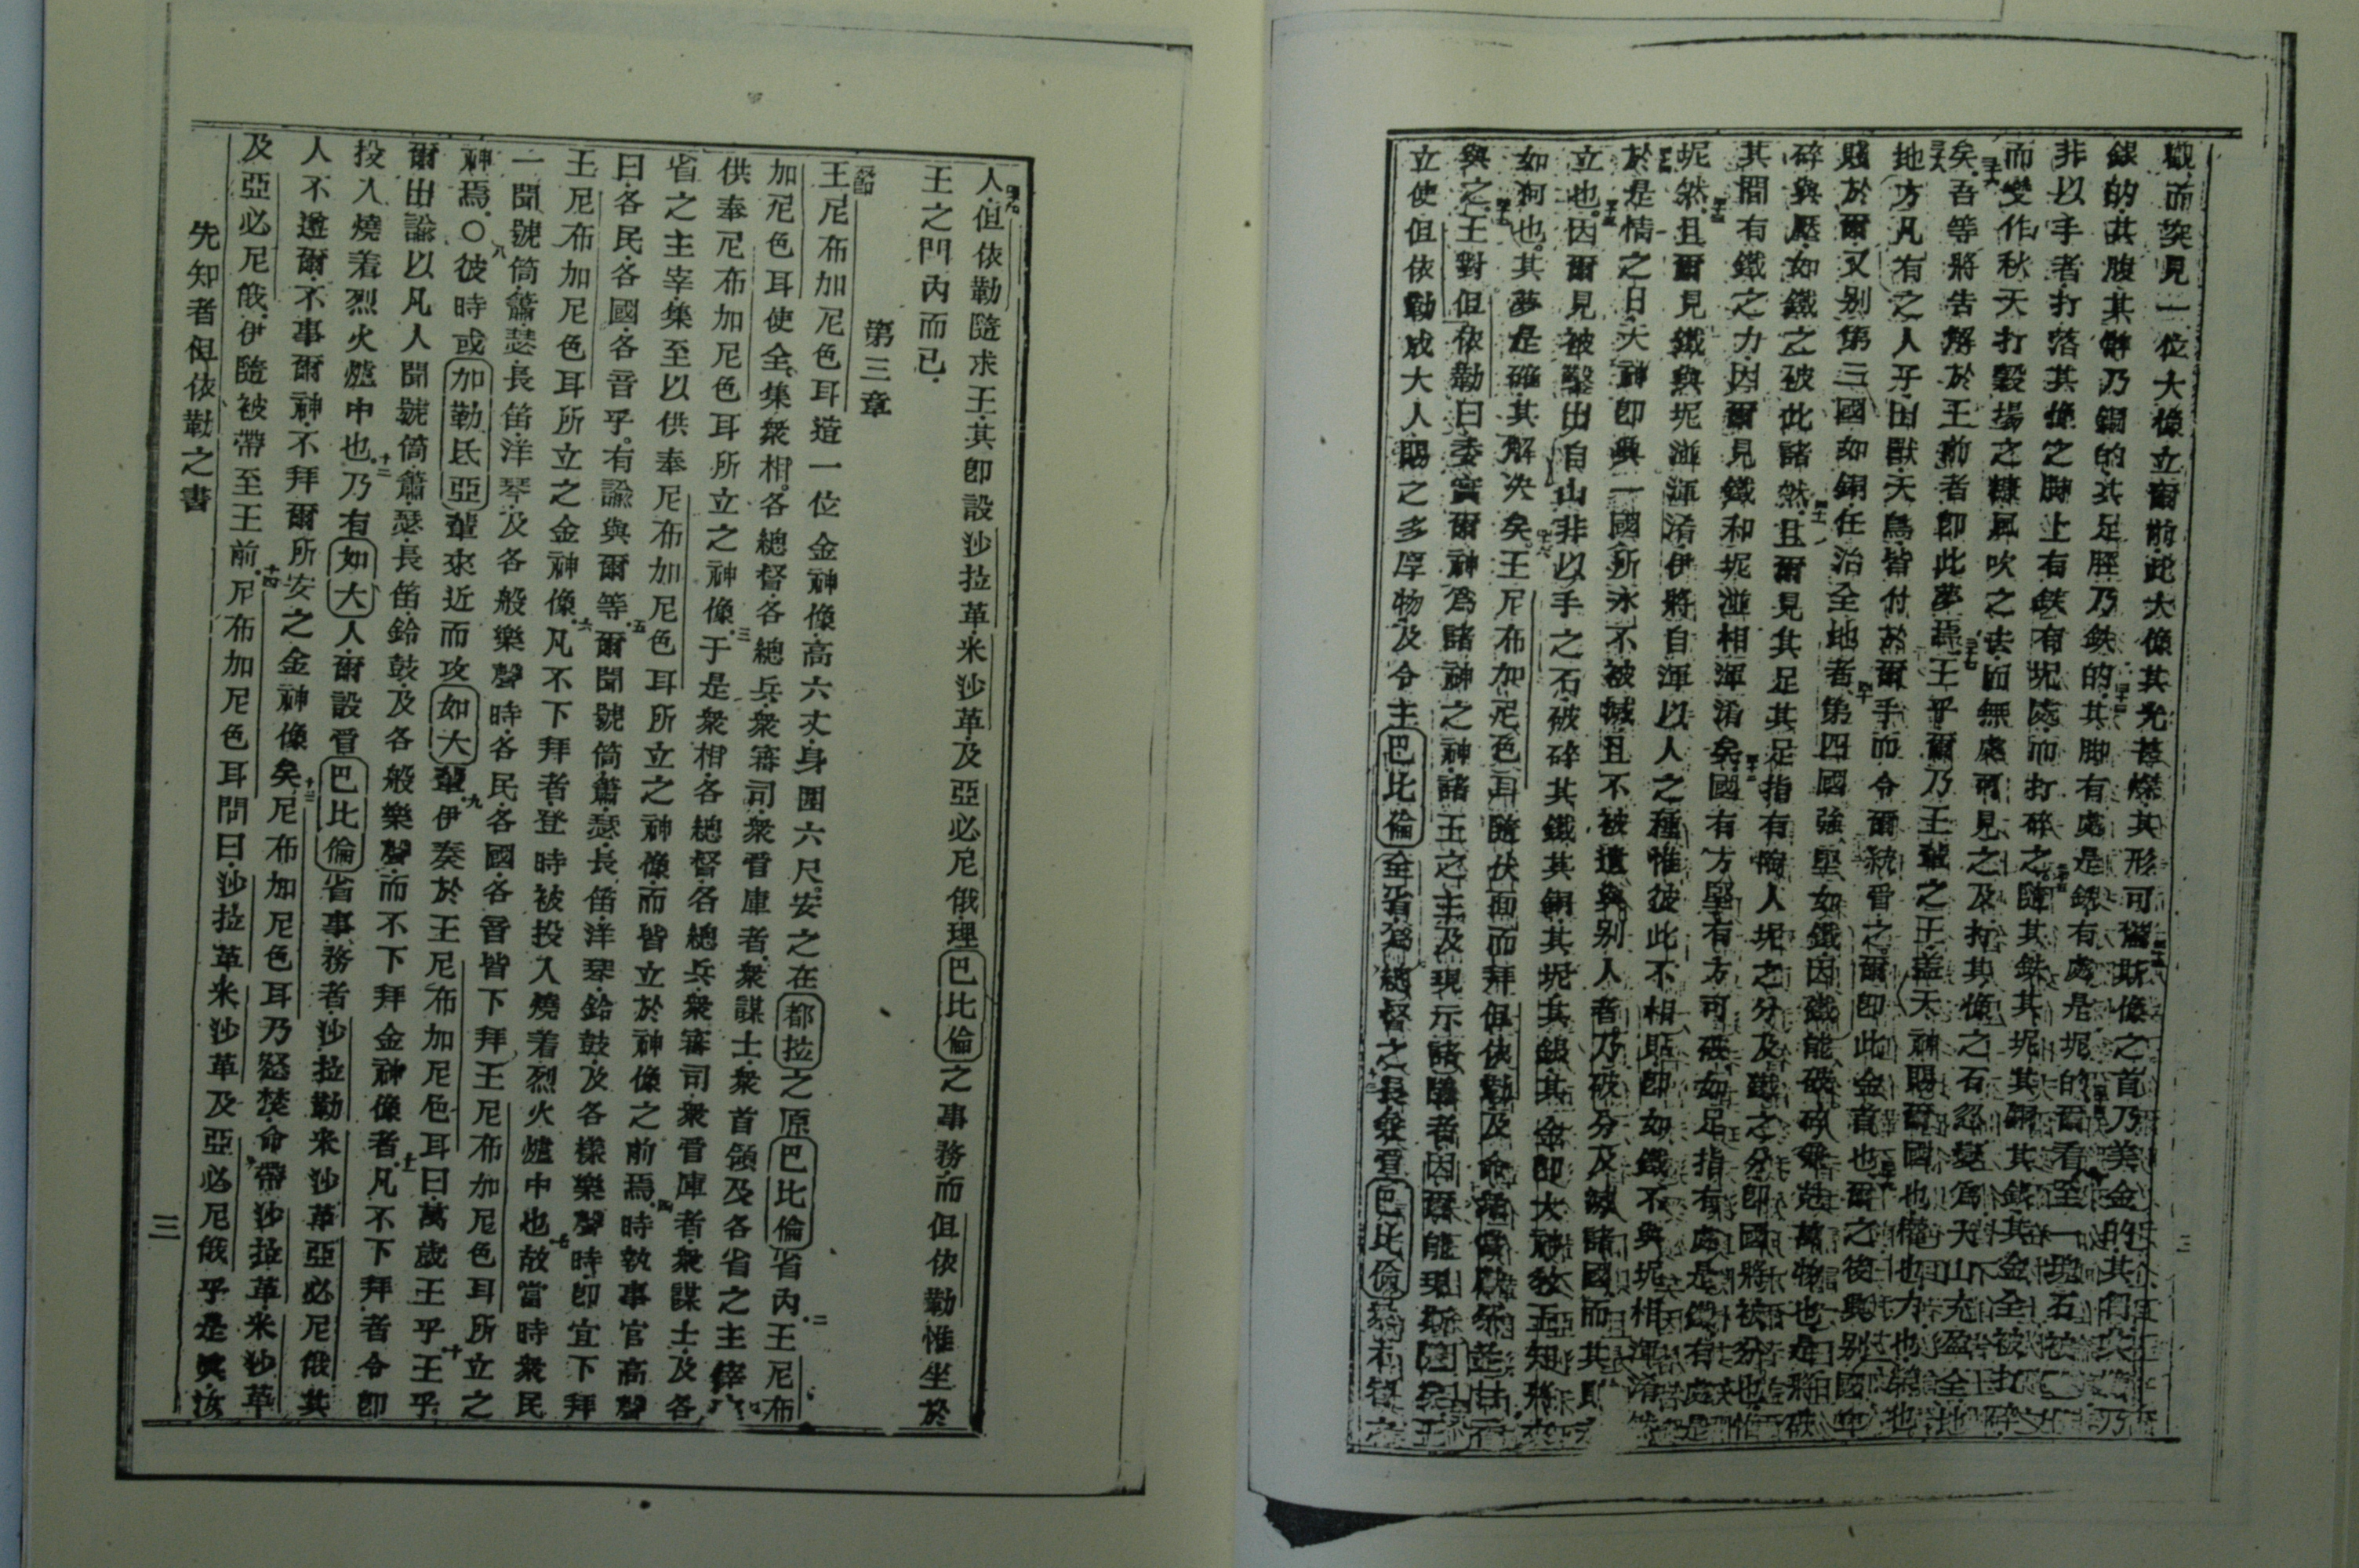 觀而突見一位大像立爾前此大像其光甚燦其形可懼斯像之首乃美金的其
銀的其腹其髀乃銅的其足脛乃鉄的其脚有處是鉄有處是坭的爾看至一塊石被
非以手者打落其像之脚上有鉄有坭處而打碎之隨其鉄其坭其銅其銀其金全被打碎
而變作秋天打穀場之糠風吹之去而無處可見之及打其像之石忽變為大山充盈全地
矣吾等將告解於王前者即此夢焉王乎爾乃王輩之王蓋天神賜爾國也權也力也榮也
地方凡有之人子田獸天鳥皆付於爾手而令爾統督之爾即此金首也爾之後與別國
賤於爾又別第三國如銅任治全地者第四國強堅如鐵因鐵能破碎兼尅萬物也是將
碎與壓如鐵之被此諸然且爾見其足其足指有陶人坭之分及鐵之分即國將被分也
其間有鐵之力因爾見鐵和坭溢相渾淆矣國有方堅有方可破如足指有處是鐵有處是
坭然且爾見鐵與坭溢渾淆伊將自渾以人之種惟彼此不相貼即如鐵不與坭相渾淆
於是情之日天神即興一國所永不被城且不被遺與別人者乃破分及滅諸國而其
立也因爾見被鑿出自山非以手之石破碎其鐵其銅其坭其銀其金即大神教王知將來
如何也其夢是確其解決矣王尼布加尼色耳隨伏面而拜但依勒及命
與之王對但依勒曰委實爾神為諸神之神諸王之主及現示諸隱者因爾能現斯隱矣王
立使但依勒成大人賜之多厚物及令主巴比倫全省為總督之長衆督巴比倫
人但依勒隨求王其即設沙拉革米沙革及亞必尼俄理巴比倫之事務而但依勒惟坐於
王之門內而已
第三章
王尼布加尼色耳造一位金神像高六丈身圍六尺安之在都拉之原巴比倫省內王尼布
加尼色耳使全集衆相各總督各總兵衆審司衆督庫者衆謀士衆首領及各省之主
供奉尼布加尼色耳所立之神像于是衆相各總督各總兵衆審司衆督庫者衆謀士及各
省之主宰集至以供奉尼布加尼色耳所立之神像而皆立於神像之前焉時執事官高聲
曰各民各國各音乎有諭與爾等爾聞號筒簫瑟長笛洋琴鈴鼓及各樣樂聲時即宜下拜
王尼布加尼色耳所立之金神像凡不下拜者登時被投入燒着烈火爐中也故當時衆民
一聞號筒簫瑟長笛洋琴及各般樂聲時各民各國各音皆下拜王尼布加尼色耳所立之
神焉○彼時或加勒氐亞輩來近而攻如大輩伊奏於王尼布加尼色耳曰萬歲王乎王乎
爾出諭以凡人聞號筒簫瑟長笛鈴鼓及各般樂聲而不下拜金神像者凡不下拜者令即
投入燒着烈火爐中也乃有如大人爾設督巴比倫省事務者沙拉勒米沙革亞必尼俄其
人不遵爾不事爾神不拜爾所安之金神像矣尼布加尼色耳乃怒焚命帶沙拉革米沙革
及亞必尼俄伊隨被帶至王前尼布加尼色耳問曰沙拉革米沙革及亞必尼俄乎是與汝
先知者但依勒之書 三